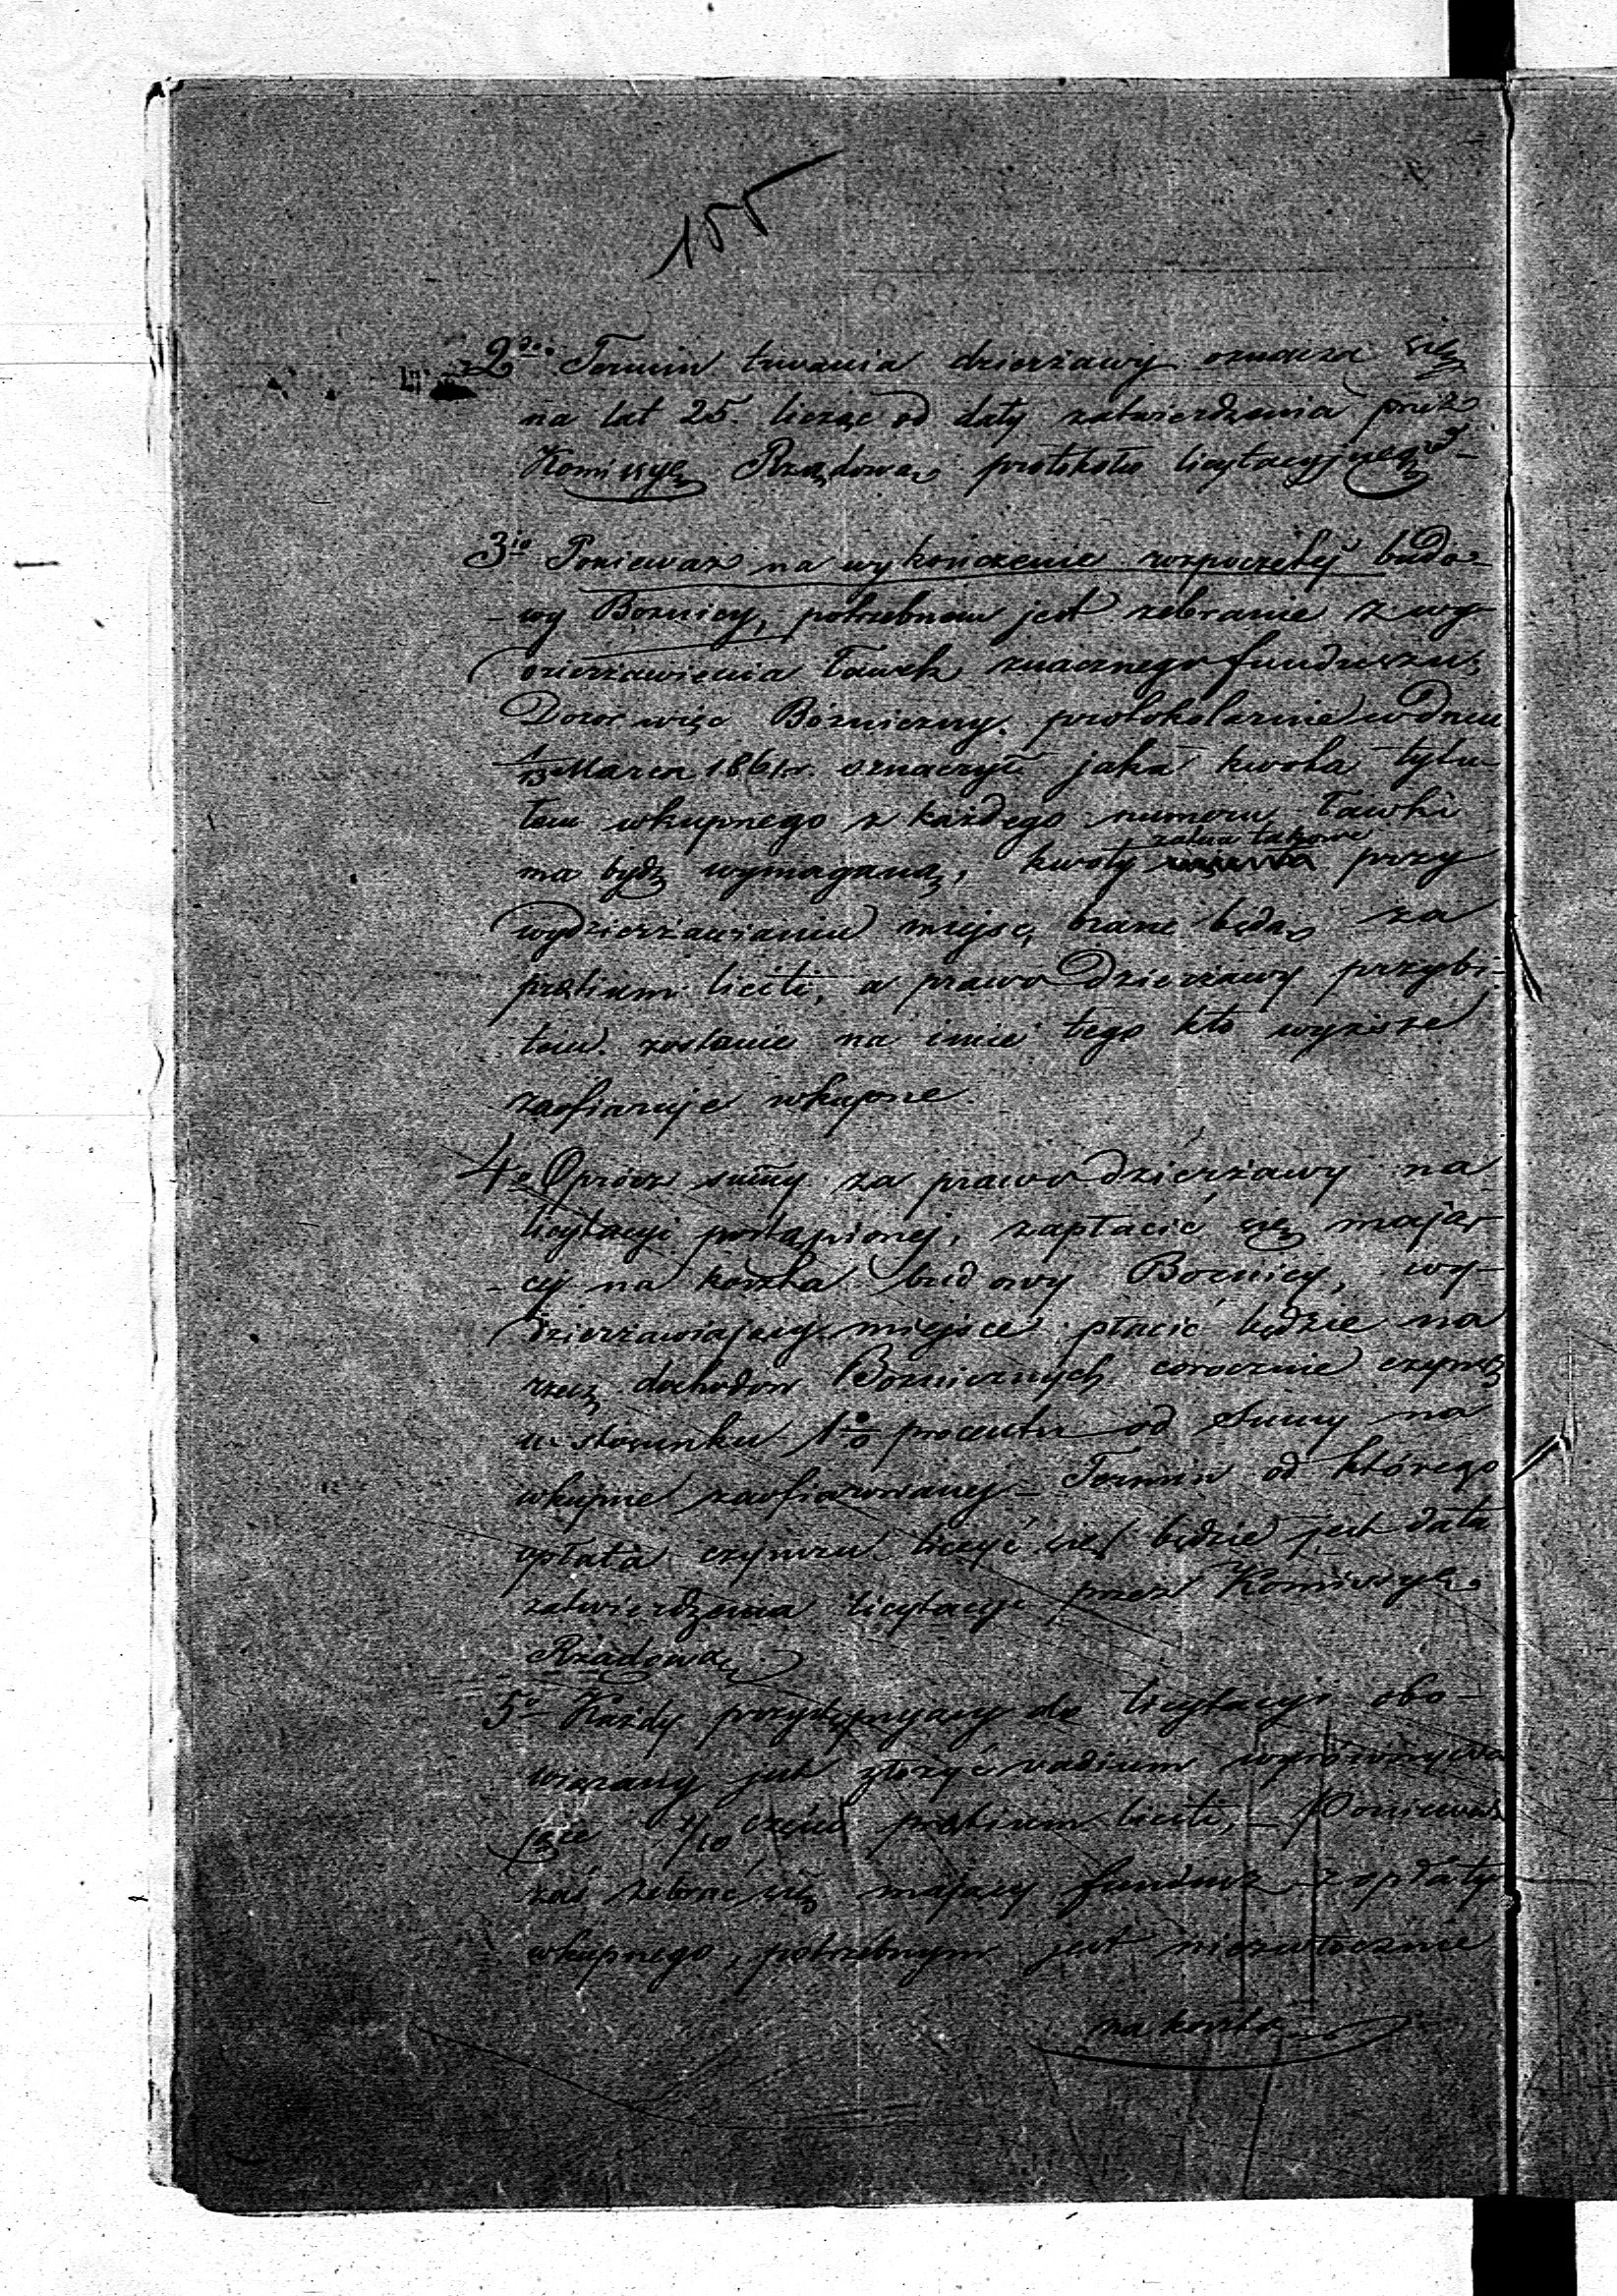 155
2do Termin trwania dzierżawy oznacza się
na lat 25. licząc od daty zatwierdzenia przez
Komissyę Rządową protokołu licytacyjnego –
3io Ponieważ na wykończenie rozpoczętej budo-
-wy Boznicy, potrzebnem jest zebranie z wy-
dzierżawienia Ławek znacznego funduszu,
Dozor więc Bóżniczny protokolarnie w dniu
1/13 Marca 1861 r. oznaczył jaka kwota tytu-
łem wkupnego z każdego numeru Ławki
ma bydź wymaganą, kwoty zatem takowe przy
wydzierżawianiu miejsc, brane będą za
pretium liciti, a prawo Dzierżawy przybi-
tem zostanie na imie tego kto wyższe
zaofiaruje wkupne
4o Oprócz summy za prawo dzierżawy na
licytacyi postąpionej, zapłacić się mają-
-cej na koszta budowy Bożnicy, wy-
dzierżawiający miejsce płacić będzie na
rzecz dochodów Boznicznych corocznie czynsz
w stosunku 1% procentu od Summy na
wkupne zaofiarowanej – Termin od którego
opłata czynszu liczyć się będzie jest data
zatwierdzenia licytacyi przez Komissyę
Rządową
5o Każdy przystępujący do licytacyi obo-
wiązany jest złożyć vadium wyrównywa
jące 1/10 części pretium liciti, – Ponieważ
zaś zebrać się mający fundusz z opłaty
wkupnego, potrzebnym jest niezwłocznie
na koszta